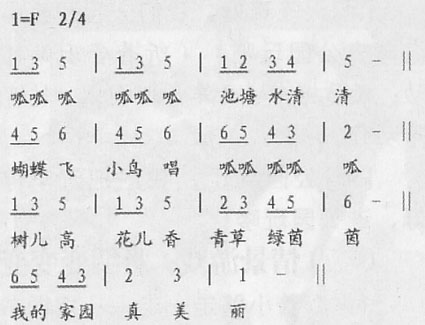 1=F 2/4
1 3 5 | 1 3 5 | 1 2 3 4 | 5 - ||
呱呱 呱 呱呱 呱 池塘 水清 清
4 5 6 | 4 5 6 | 6 5 4 3 | 2 - ||
蝴蝶 飞 小鸟 唱 呱呱 呱呱 呱
1 3 5 | 1 3 5 | 2 3 4 5 | 6 - ||
树儿 高 花儿 香 青草 绿茵 茵
6 5 4 3 | 2 3 | 1 - ||
我的 家园 真 美 丽